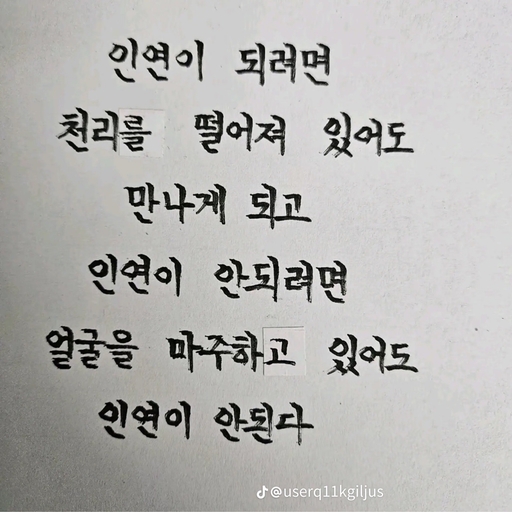 인연이 되려면
천리를 떨어져 있어도
만나게 되고
인연이 안되려면
얼굴을 마주하고 있어도
인연이 안된다
@userq11kgiljus